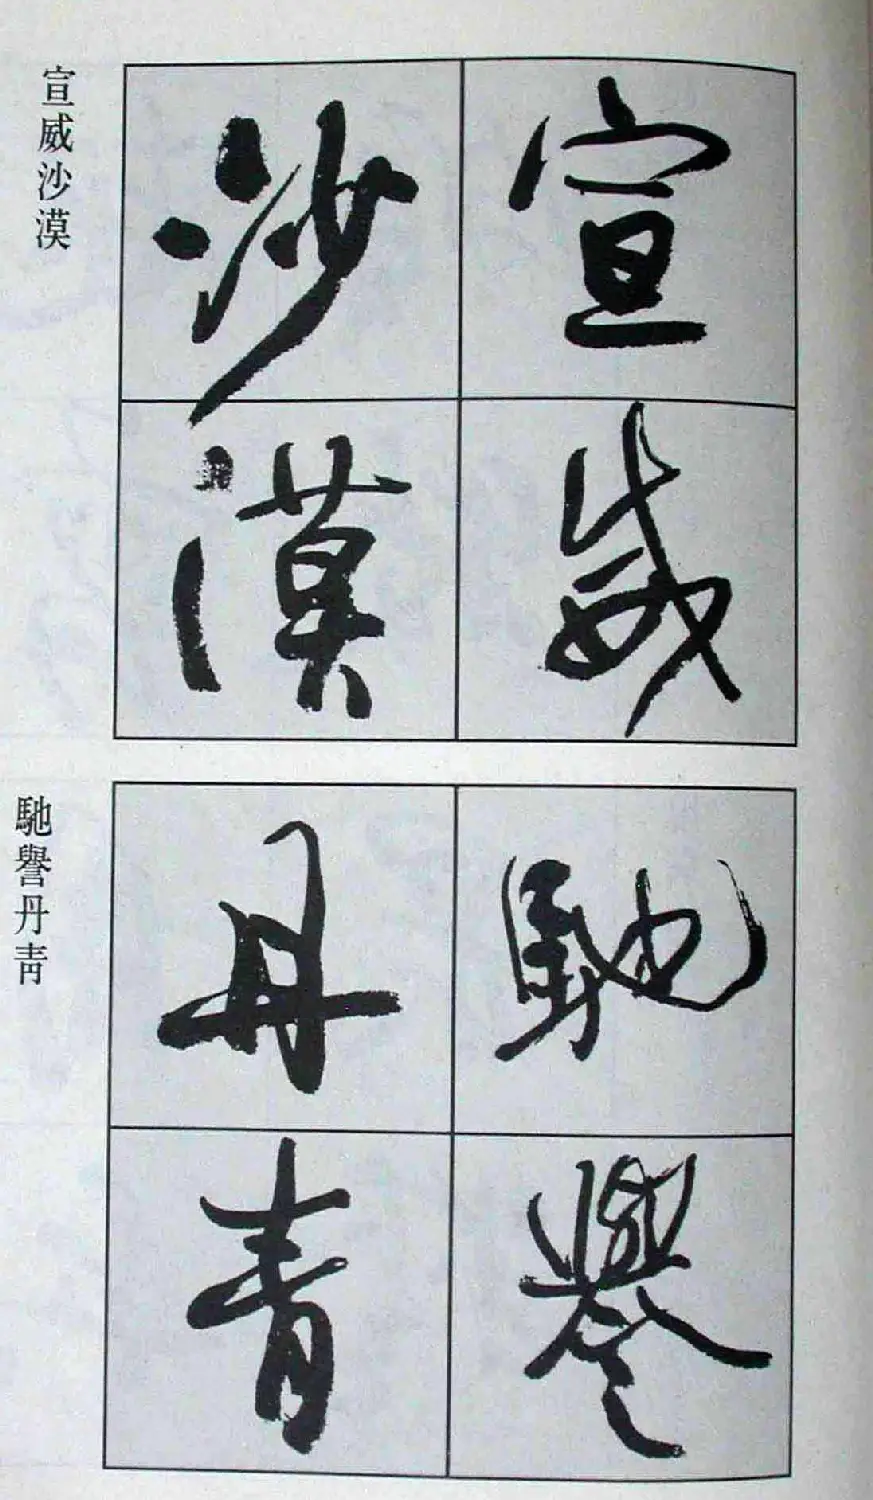 宣威
沙漠
宣威沙漠
馳譽
丹青
馳譽丹靑